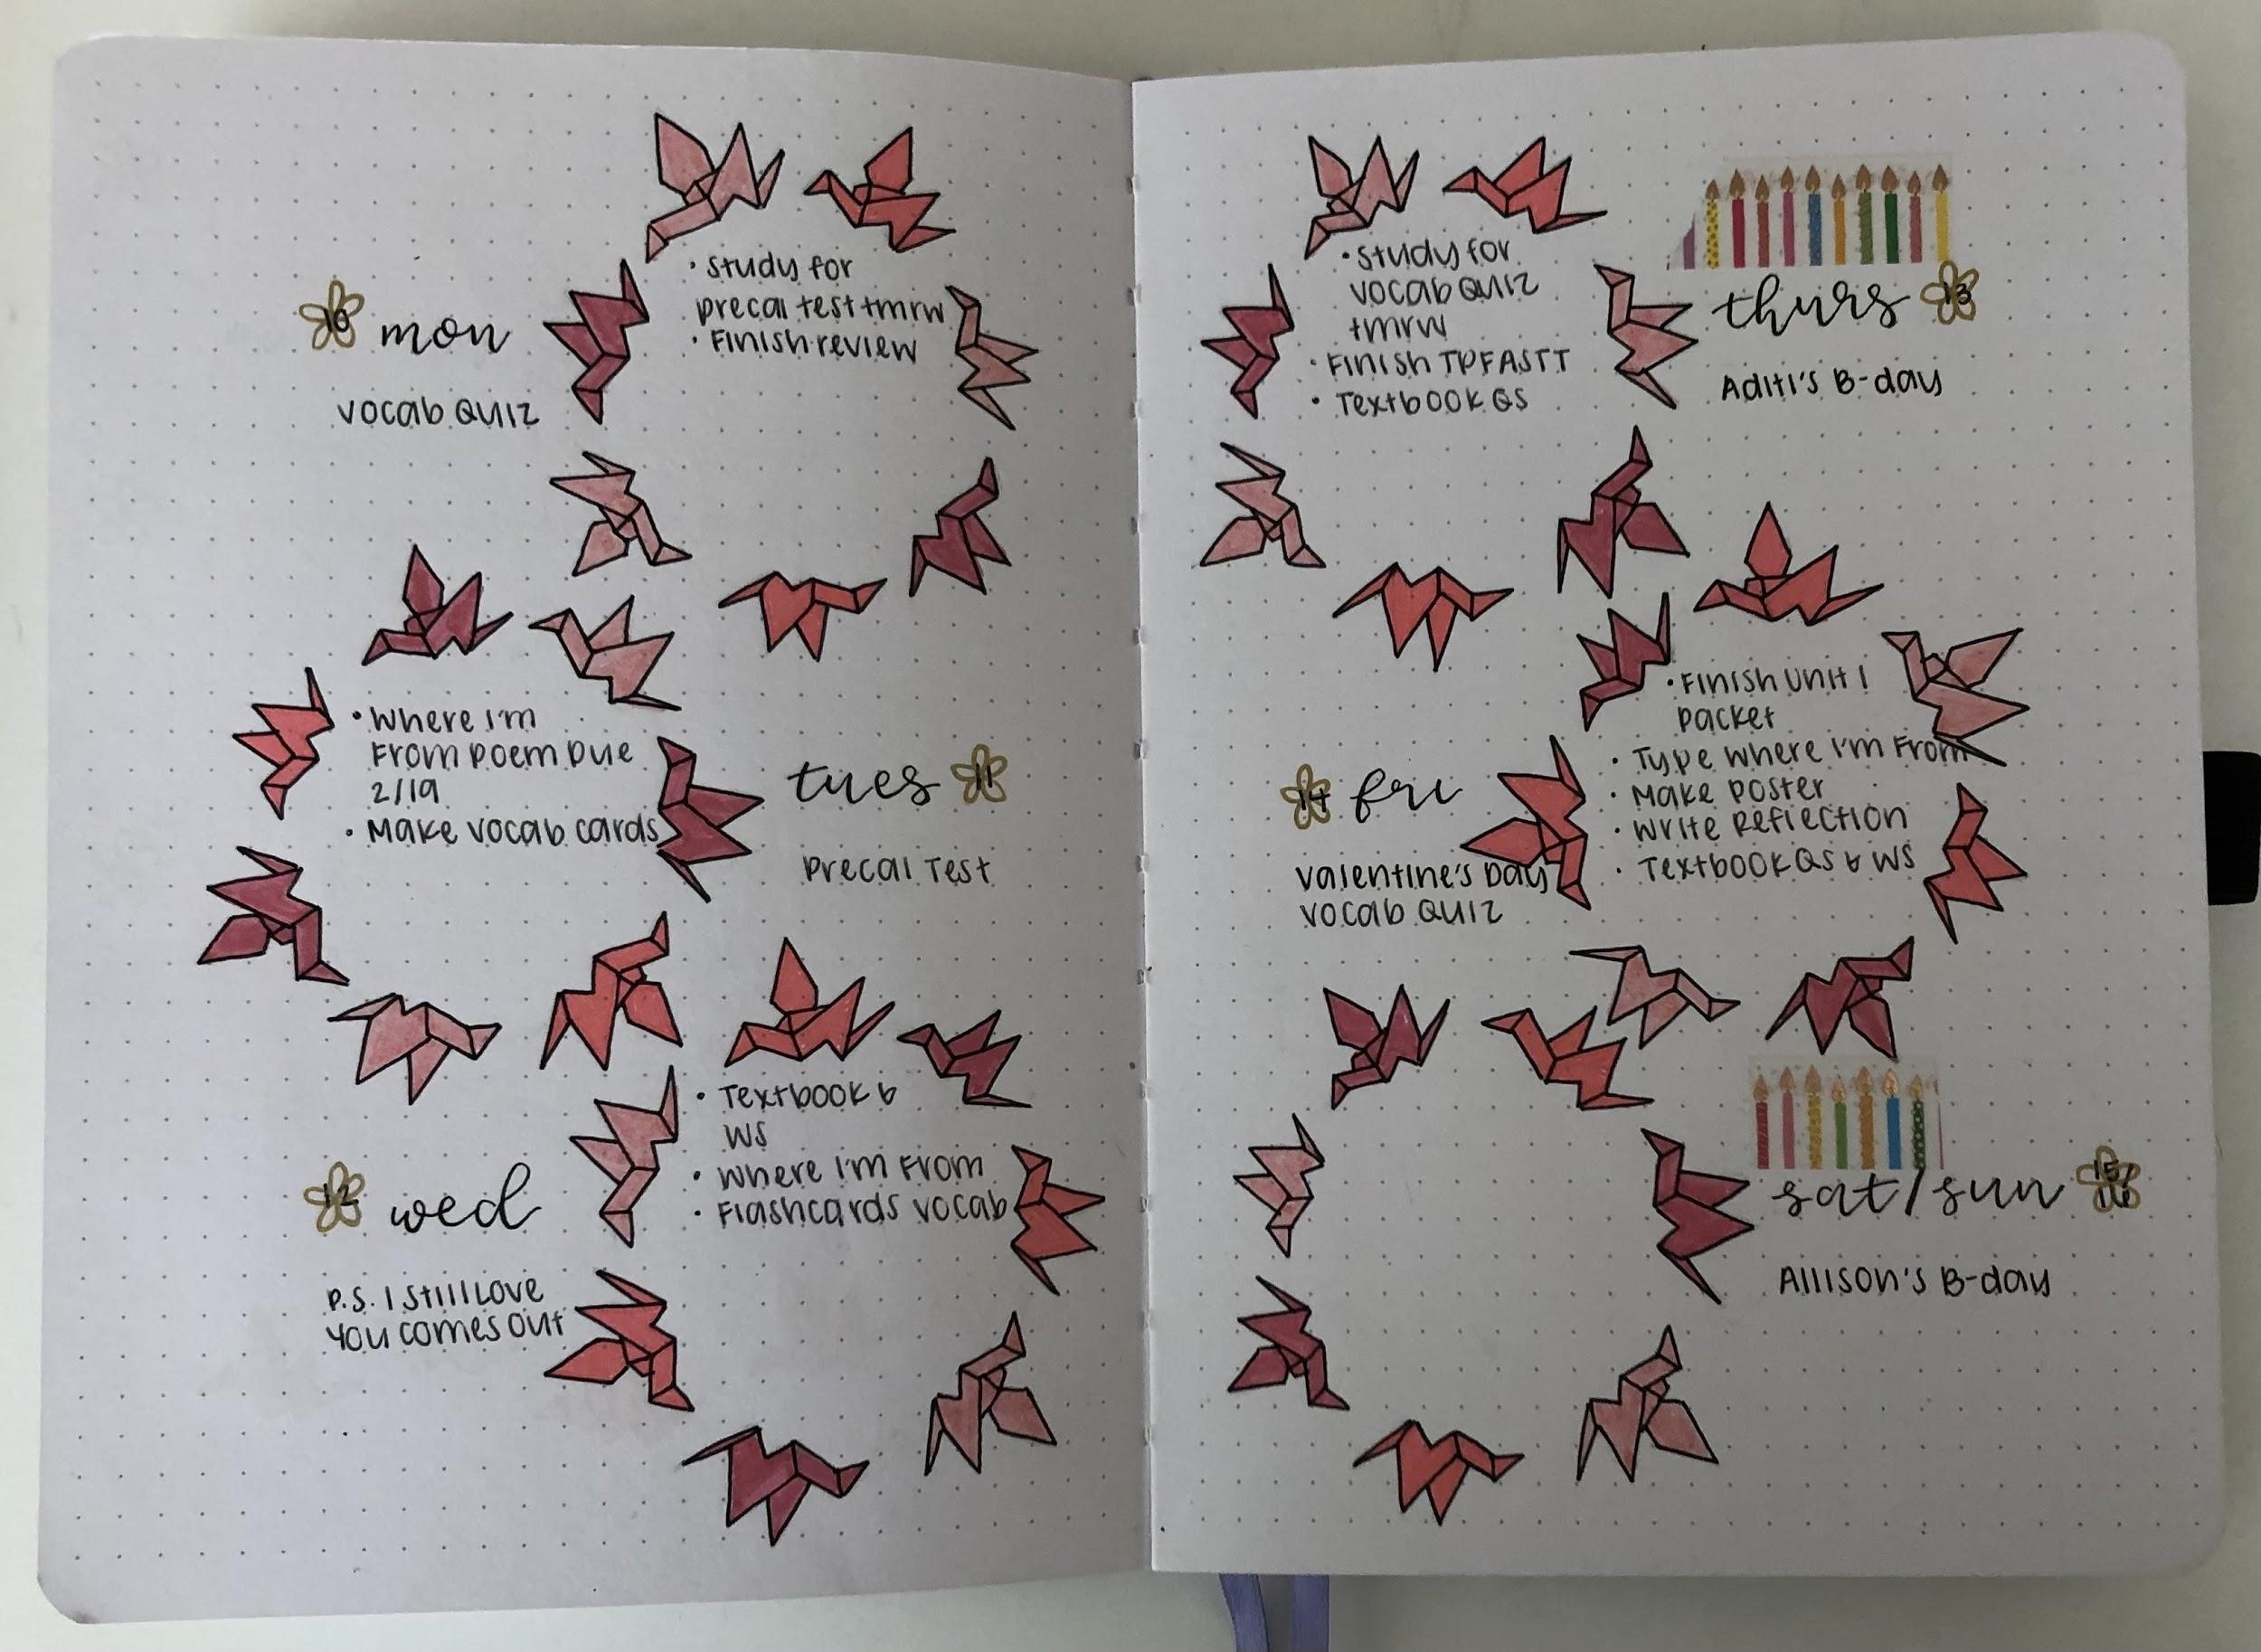 10 mon
vocab Quiz
• Study for
precal test tmrw
• Finish review
• Where I'm
From Poem Due
2/19
• Make vocab cards
tues 11
Precal Test
12 wed
P.S. I Still Love
You comes out
• Textbook &
WS
• Where I'm From
• Flashcards vocab
• Study for
vocab Quiz
tmrw
• Finish TPFASTT
• Textbook Qs
thurs 13
Aditi's B-day
14 fri
Valentine's Day
vocab Quiz
• Finish Unit 1
Packet
• Type Where I'm From
• Make Poster
• Write Reflection
• Textbook Qs & WS
sat/sun 15/
16
Allison's B-day